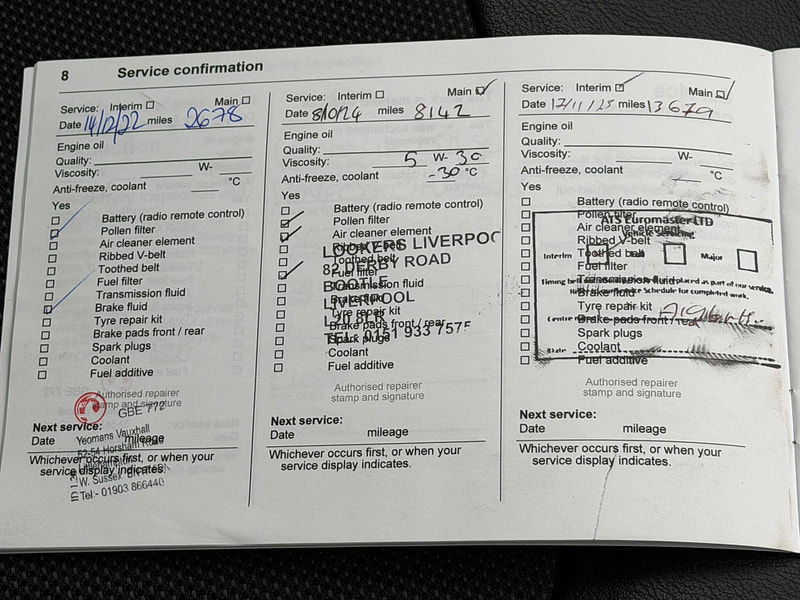 8 Service confirmation
Service: Interim Main
Date 14/12/22 miles 2678
Engine oil
Quality:
Viscosity: W-
Anti-freeze, coolant °C
Yes
Battery (radio remote control)
Pollen filter
Air cleaner element
Ribbed V-belt
Toothed belt
Fuel filter
Transmission fluid
Brake fluid
Tyre repair kit
Brake pads front / rear
Spark plugs
Coolant
Fuel additive
Authorised repairer
stamp and signature
GBE 772
Yeomans Vauxhall
52-54 Horsham
W. Sussex
Tel:- 01903 866440
Next service:
Date mileage
Whichever occurs first, or when your
service display indicates.
Service: Interim Main
Date miles 8142
Engine oil
Quality:
Viscosity: 5 W- 30
Anti-freeze, coolant -30 °C
Yes
Battery (radio remote control)
Pollen filter
Air cleaner element
Ribbed V-belt
Toothed belt
Fuel filter
Transmission fluid
Brake fluid
Tyre repair kit
Brake pads front / rear
Spark plugs
Coolant
Fuel additive
LOOKERS LIVERPOO
82 DERBY ROAD
BOOTLE
LIVERPOOL
L20 8LR
TEL: 0151 933 7575
Authorised repairer
stamp and signature
Next service:
Date mileage
Whichever occurs first, or when your
service display indicates.
Service: Interim Main
Date miles 13679
Engine oil
Quality:
Viscosity: W-
Anti-freeze, coolant °C
Yes
Battery (radio remote control)
Pollen filter
Air cleaner element
Ribbed V-belt
Toothed belt
Fuel filter
Transmission fluid
Brake fluid
Tyre repair kit
Brake pads front / rear
Spark plugs
Coolant
Fuel additive
ATS Euromaster LTD
Vehicle Servicing
Interim Major
Timing belt placed as part of our service.
Service Schedule for completed work.
Centre
Date
Authorised repairer
stamp and signature
Next service:
Date mileage
Whichever occurs first, or when your
service display indicates.